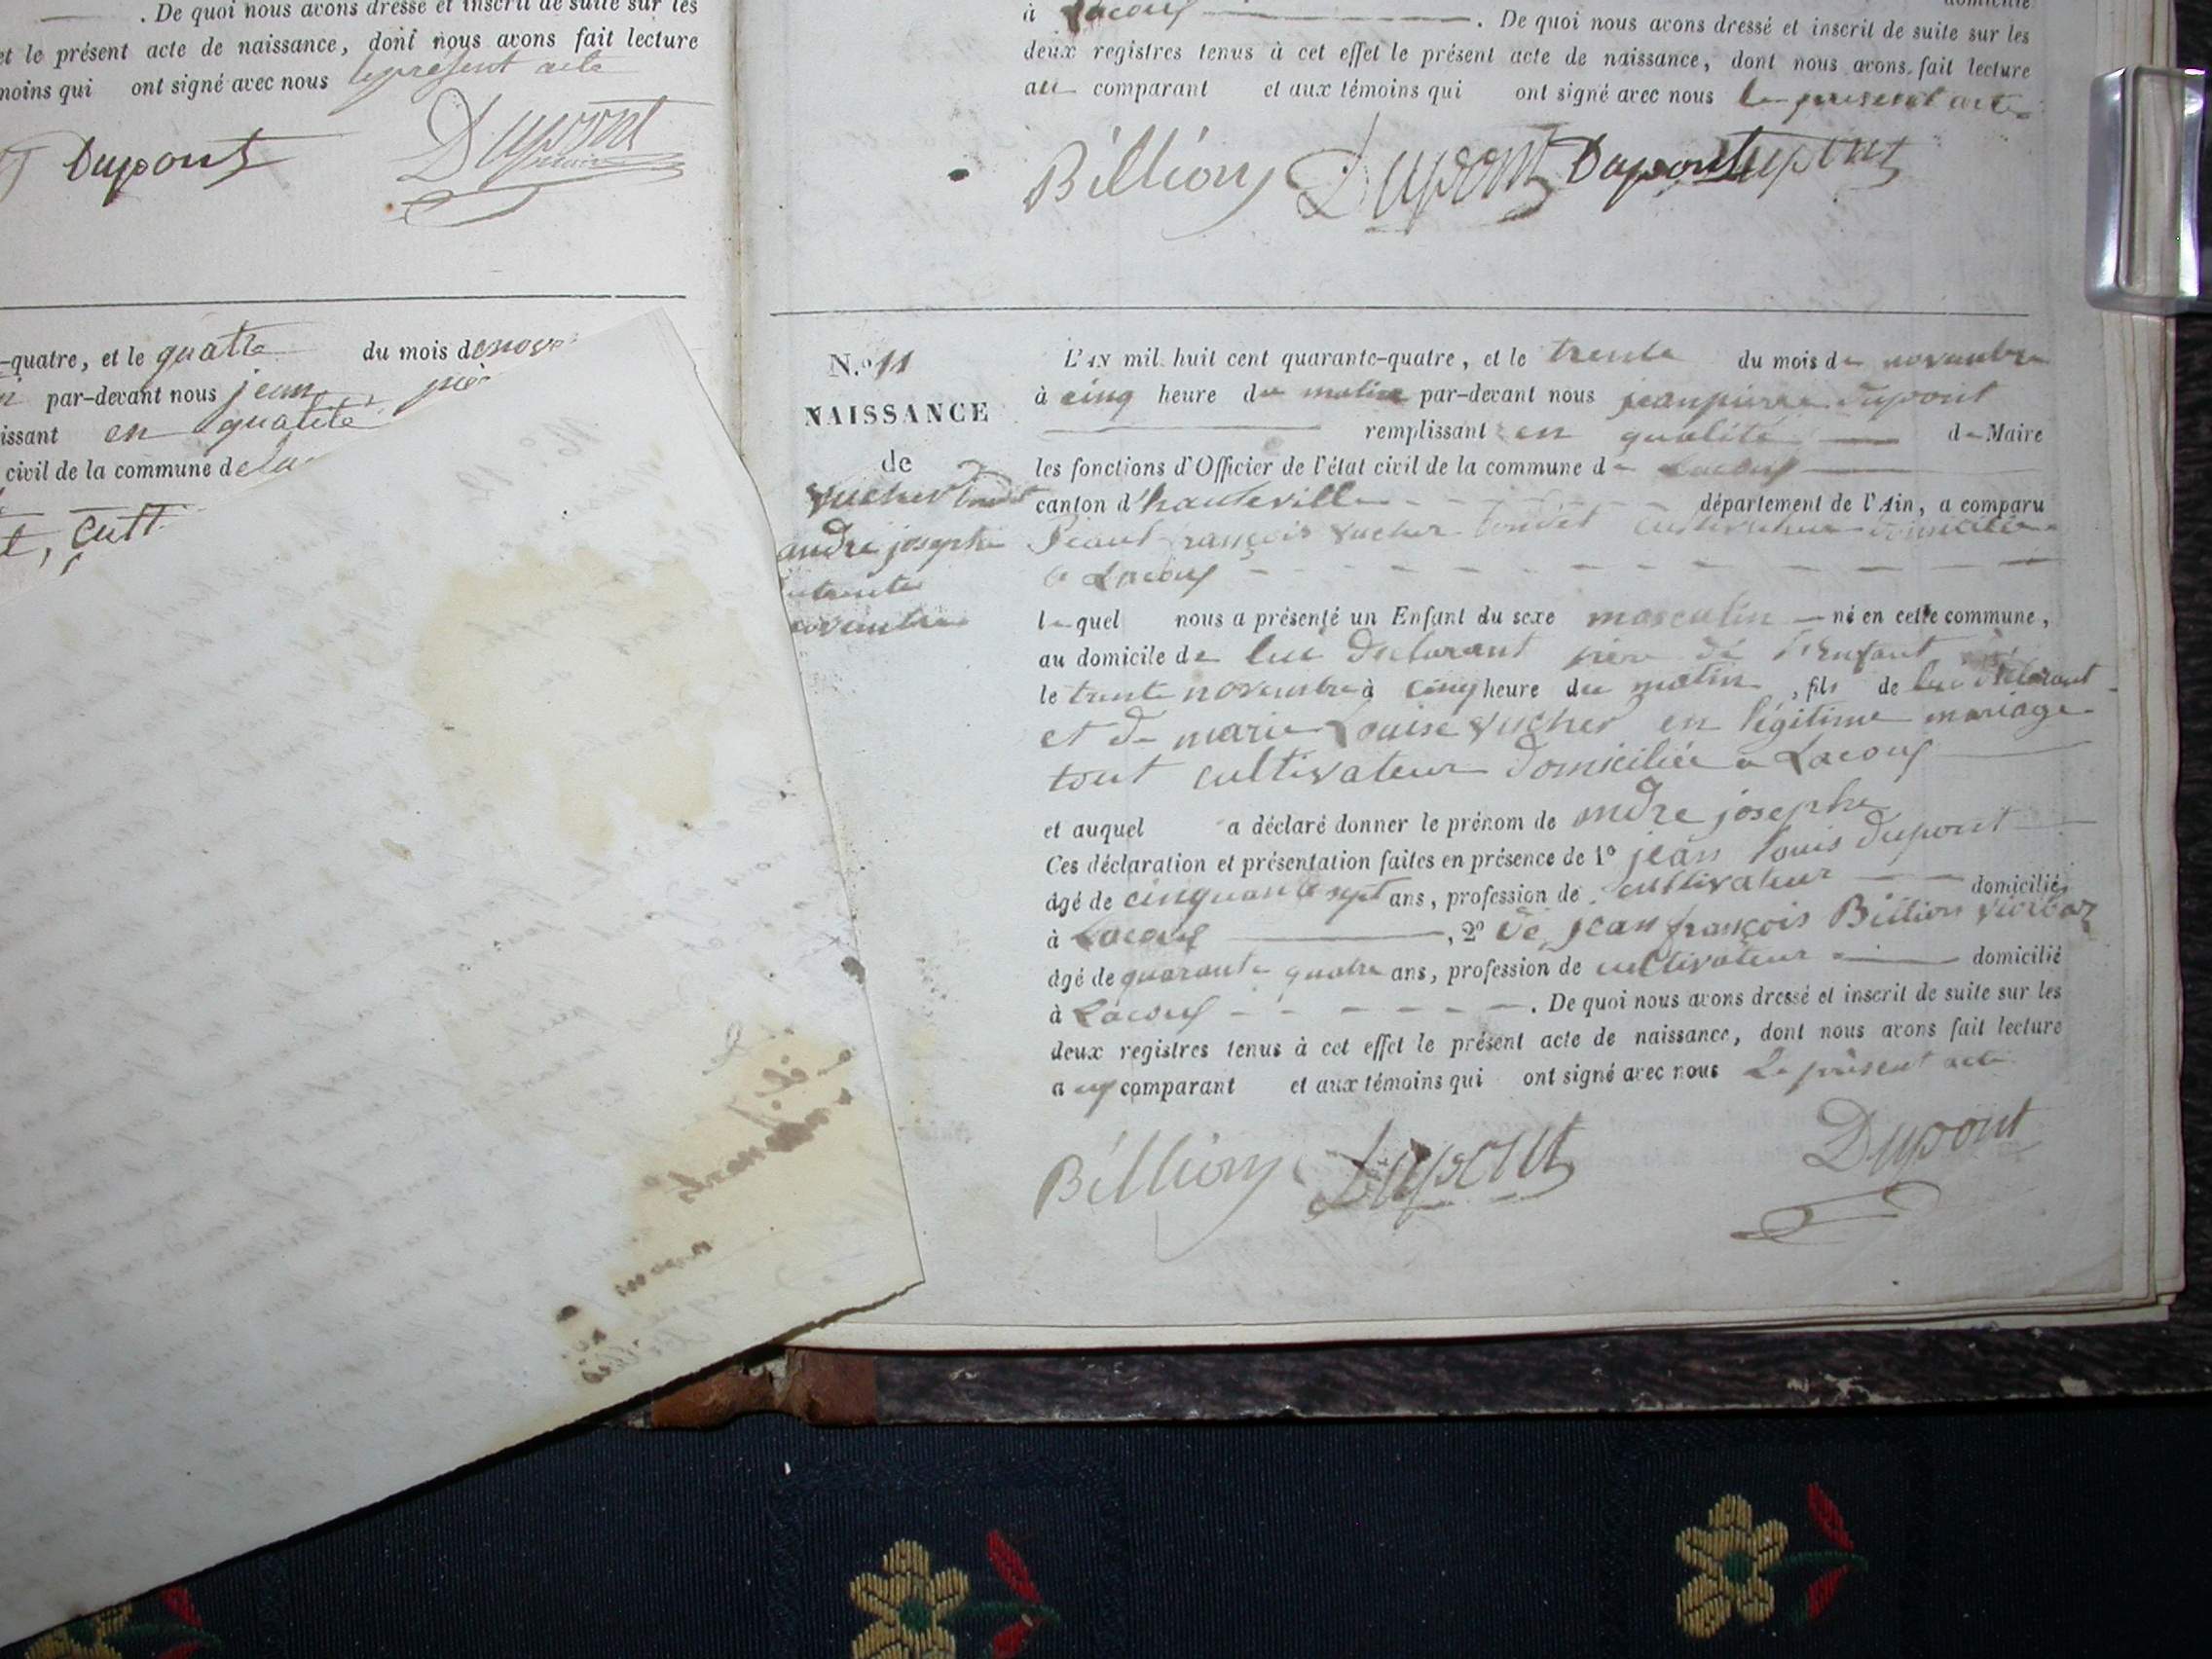 . De quoi nous avons dressé et inscrit de suite sur les
et le présent acte de naissance, dont nous avons fait lecture
moins qui ont signé avec nous le présent acte
Dupont Dupont
-quatre, et le quatre du mois de nov
par-devant nous jean pier
issant en qualité
civil de la commune de la
t, cult
à Lacoux . De quoi nous avons dressé et inscrit de suite sur les
deux registres tenus à cet effet le présent acte de naissance, dont nous avons fait lecture
au comparant et aux témoins qui ont signé avec nous le présent acte
Billion Dupont Dupont Dupont
N.º 11
NAISSANCE
de
Vucher tondet
andre josephe
trente
novembre
L'AN mil huit cent quarante-quatre, et le trente du mois de novembre
à cinq heure du matin par-devant nous jeanpierre dupont
remplissant en qualité de Maire
les fonctions d'Officier de l'état civil de la commune de Lacoux
canton d'hauteville département de l'Ain, a comparu
Jean françois vucher tondet cultivateur domicilié
a Lacoux
lequel nous a présenté un Enfant du sexe masculin né en cette commune,
au domicile de lui declarant père de l'Enfant
le trente novembre à cinq heure du matin, fils de lui déclarant
et de marie Louise Vucher en légitime mariage
tout cultivateur domiciliée a Lacoux
et auquel a déclaré donner le prénom de andre josephe
Ces déclaration et présentation faites en présence de 1º jean louis dupont
âgé de cinquante sept ans, profession de cultivateur domicilié
à Lacoux , 2º de jean françois Billion
âgé de quarante quatre ans, profession de cultivateur domicilié
à Lacoux . De quoi nous avons dressé et inscrit de suite sur les
deux registres tenus à cet effet le présent acte de naissance, dont nous avons fait lecture
aux comparant et aux témoins qui ont signé avec nous Le présent acte
Billion Dupont Dupont